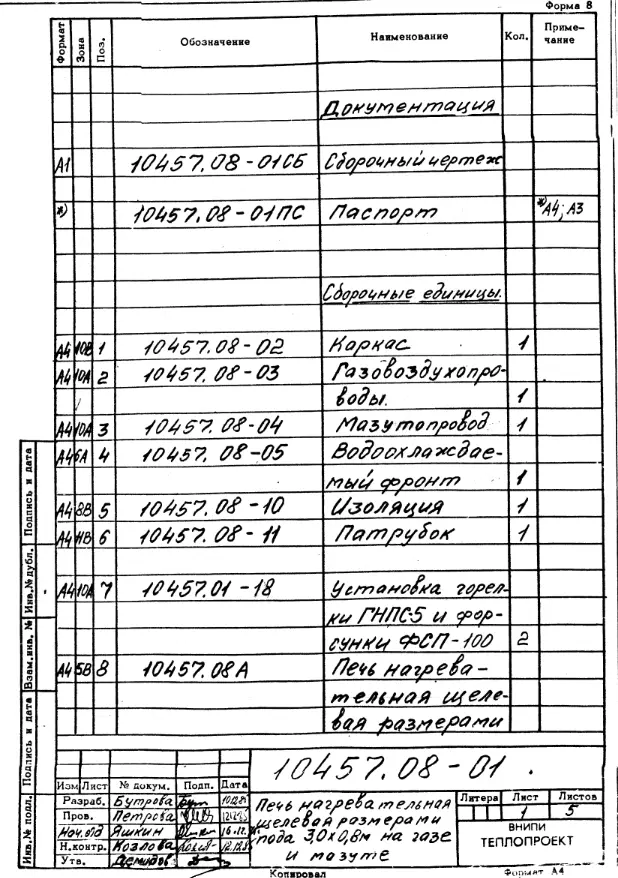 Форма 8
Формат Зона Поз. Обозначение Наименование Кол. Приме-
чание
Документация
А1 10457.08-01СБ Сборочный чертеж
*) 10457.08-01ПС Паспорт *)А4; А3
Сборочные единицы.
А4 10В 1 10457.08-02 Каркас 1
А4 10А 2 10457.08-03 Газовоздухопро-
воды. 1
А4 10А 3 10457.08-04 Мазутопровод 1
А4 6А 4 10457.08-05 Водоохлаждае-
мый фронт 1
А4 8В 5 10457.08-10 Изоляция 1
А4 11В 6 10457.08-11 Патрубок 1
А4 10А 7 10457.01-18 Установка горел-
ки ГНПС-5 и фор-
сунки ФСП-100 2
А4 5В 8 10457.08А Печь нагрева-
тельная щеле-
вая размерами
Подпись и дата
Инв.№ дубл.
Взам.инв. №
Подпись и дата
Инв.№ подл.
10457.08-01.
Изм Лист № докум. Подп. Дата
Разраб. Бутрова
Пров. Петрова
Нач.отд Яшкин
Н.контр. Козлова
Утв. Демидов
Печь нагревательная
щелевая размерами
пода 3,0х0,8м на газе
и мазуте
Литера Лист Листов
1 5
ВНИПИ
ТЕПЛОПРОЕКТ
Копировал Формат А4